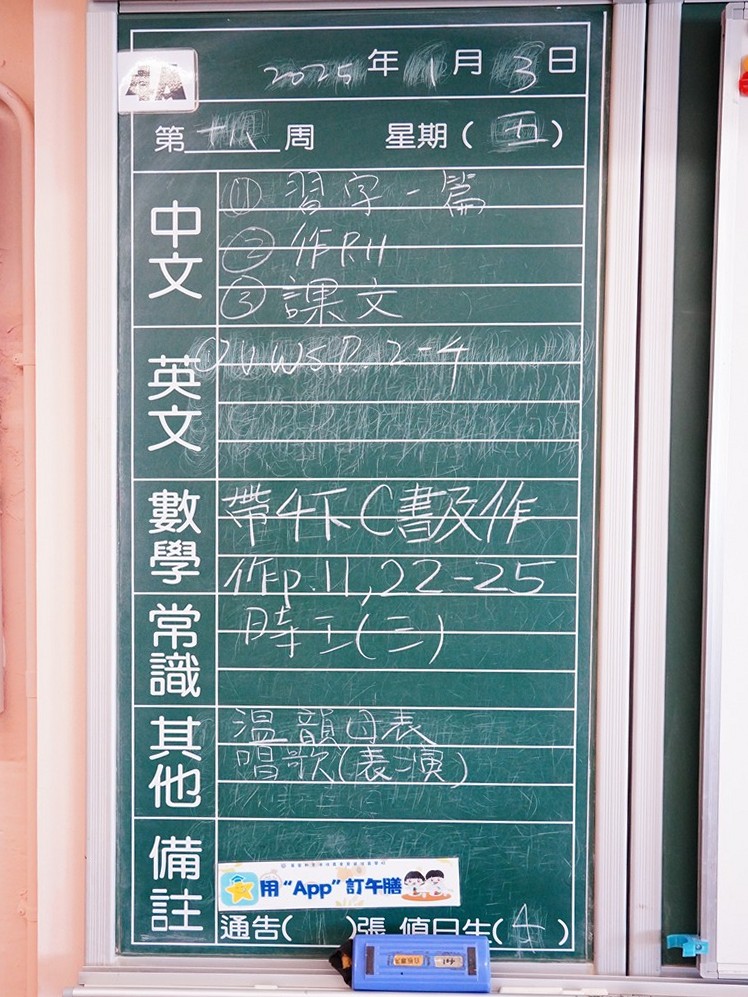 2025年1月3日
第十八周 星期(五)
中文
① 習字一篇
② 作P.11
③ 課文
英文
① U.W.S P. 2-4
數學
帶4下C書及作
作p.11,22-25
常識
時工(三)
其他
溫韻母表
唱歌(表演)
備註
用“App”訂午膳
通告( )張 值日生(4)